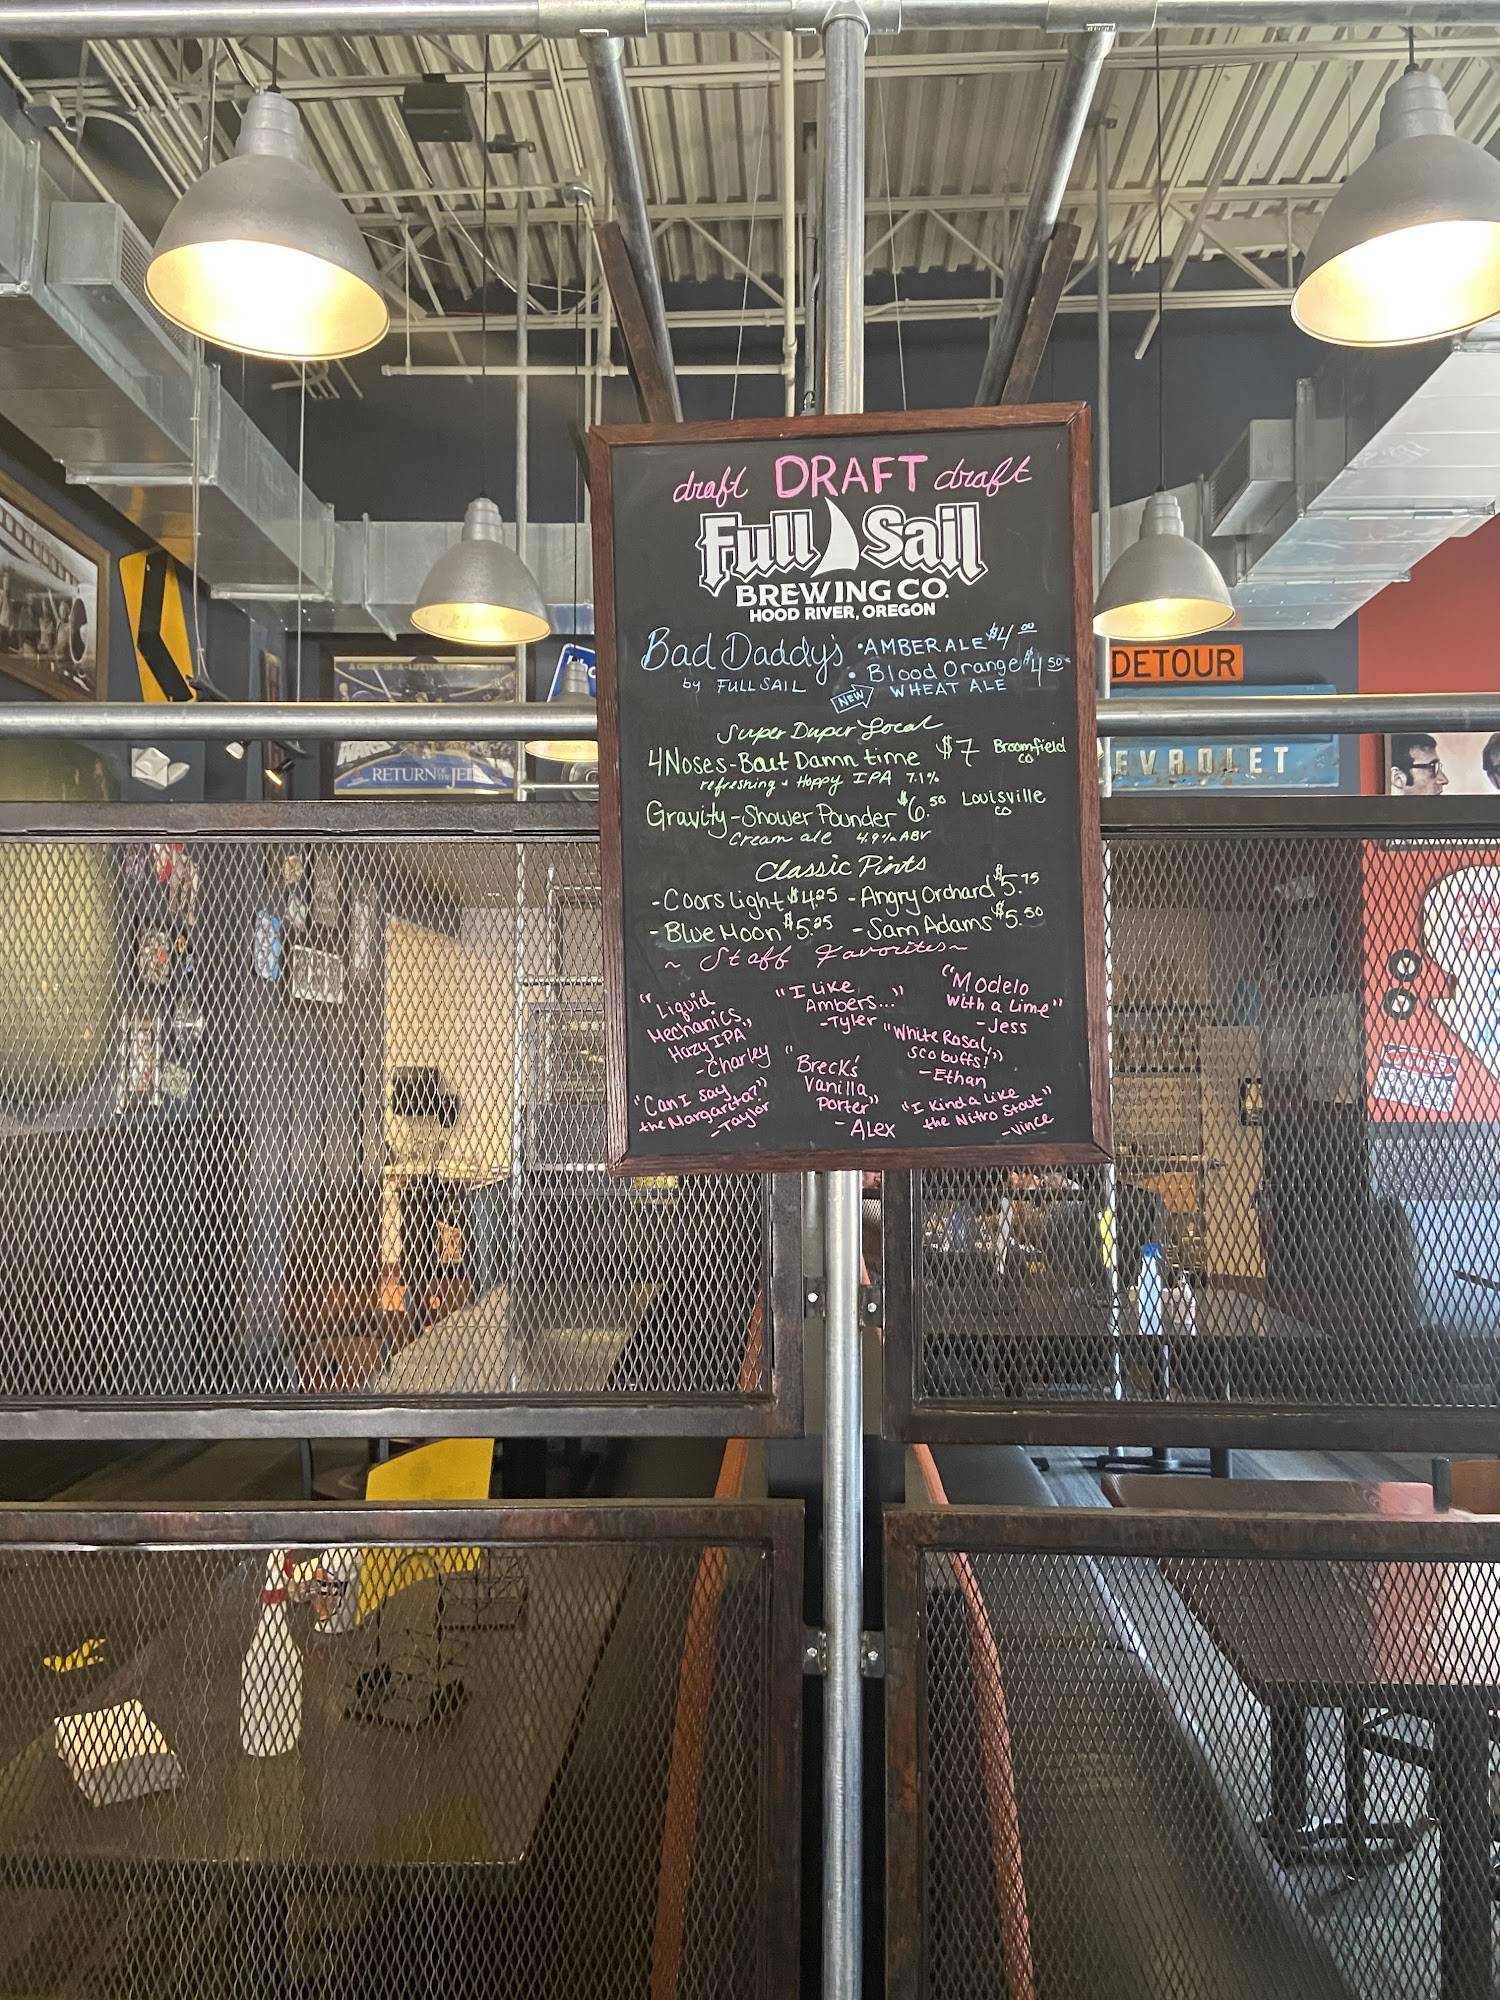 draft DRAFT draft
Full Sail
BREWING CO.
HOOD RIVER, OREGON
Bad Daddy's • AMBER ALE $4.00
by FULL SAIL • Blood Orange $4.50
NEW WHEAT ALE
Super Duper Local
4Noses - Bout Damn time $7 Broomfield CO
refreshing + Hoppy IPA 7.1%
Gravity - Shower Pounder $6.50 Louisville CO
Cream ale 4.9% ABV
Classic Pints
- Coors Light $4.25 - Angry Orchard $5.75
- Blue Moon $5.25 - Sam Adams $5.50
~ Staff Favorites ~
"Liquid
Mechanics
Hazy IPA"
- Charley
"I Like
Ambers..."
- Tyler
"Modelo
with a Lime"
- Jess
"White Rascal,
SCO buffs!"
- Ethan
"Can I say
the Margarita?"
- Taylor
"Breck's
Vanilla
Porter"
- ALex
"I Kinda Like
the Nitro Stout"
- Vince
DETOUR
EVROLET
RETURN OF THE JEDI